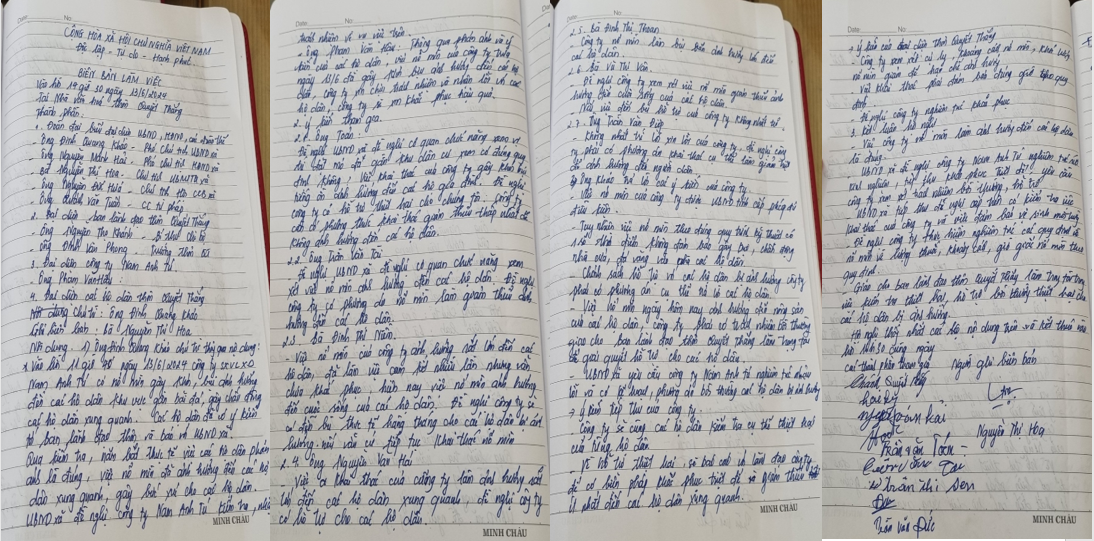 Date No
CỘNG HÒA XÃ HỘI CHỦ NGHĨA VIỆT NAM
Độc lập - Tự do - Hạnh phúc
BIÊN BẢN LÀM VIỆC
Vào hồi 19 giờ 30 ngày 13/6/2024
Tại Nhà văn hoá thôn Quyết Thắng
Thành phần:
1. Đoàn đại biểu đại diện UBND, HĐND, các đoàn thể
Ông Đinh Quang Khảo - Phó chủ tịch UBND xã
Ông Nguyễn Mạnh Hải - Phó chủ tịch HĐND xã
Bà Nguyễn Thị Hoa - Chủ tịch UBMTTQ xã
Ông Nguyễn - Chủ tịch Hội CCB xã
Ông Văn Tuấn - CC tư pháp
2. Đại diện ban lãnh đạo thôn Quyết Thắng
Ông Nguyễn Thọ Khánh - Bí thư chi bộ
Ông Đinh Văn Phong - Trưởng thôn
3. Đại diện công ty Nam Anh Tú
Ông Phạm Văn
4. Đại diện các hộ dân thôn Quyết Thắng
Nội dung chủ trì: Ông Đinh Quang Khảo
Ghi biên bản: Bà Nguyễn Thị Hoa
Nội dung: 1, Ông Đinh Quang Khảo chủ trì thông qua nội dung:
Vào hồi 11 giờ 40 ngày 13/6/2024 công ty
Nam Anh Tú có nổ mìn gây khói, bụi ảnh hưởng
đến các hộ dân khu vực gần bãi đá, gây chấn động
các hộ dân xung quanh. Các hộ dân đã có ý kiến
tới ban lãnh đạo thôn và báo về UBND xã.
Qua kiểm tra, nắm bắt thực tế và các hộ dân phản
ánh là đúng, việc nổ mìn đã ảnh hưởng đến các hộ
dân xung quanh, gây cho các hộ dân.
UBND xã đề nghị công ty Nam Anh Tú kiểm tra,
MINH CHÂU
Date No
trách nhiệm về vụ việc trên.
- Ông Phạm Văn : Thông qua phản ánh và ý
kiến của các hộ dân, việc nổ mìn của công ty trong
ngày 13/6 đã gây khói bụi ảnh hưởng đến các hộ
dân, công ty xin chịu trách nhiệm và nhận lỗi với các
hộ dân, công ty sẽ khắc phục hậu quả.
2. Ý kiến tham gia.
2.1. Ông Toàn:
Đề nghị UBND xã đề nghị cơ quan chức năng xem về
đá gần khu dân cư xem có đúng quy
định không, việc khai thác của công ty gây khói bụi
tiếng ồn ảnh hưởng đến các hộ gia đình. Đề nghị
công ty có hỗ trợ thiệt hại cho chúng tôi, công ty
cần có phương thức khai thác giảm thiểu thấp nhất để
không ảnh hưởng đến các hộ dân.
2.2. Ông Trần Văn
Đề nghị UBND xã đề nghị cơ quan chức năng xem
xét việc nổ mìn ảnh hưởng đến các hộ dân. Đề nghị
công ty có phương án nổ mìn làm giảm thiểu ảnh
hưởng đến các hộ dân.
2.3. Bà Đinh Thị
- Việc nổ mìn của công ty ảnh hưởng rất lớn đến các
hộ dân, đã lần việc cam kết nhiều lần nhưng vẫn
chưa khắc phục, hiện nay việc nổ mìn ảnh hưởng
đến cuộc sống của các hộ dân. Đề nghị công ty
có đền bù thực tế hàng tháng cho các hộ dân bị ảnh
hưởng nếu vẫn cứ tiếp tục khai thác nổ mìn
2.4. Ông Nguyễn Văn Hải
- Việc khai thác của công ty làm ảnh hưởng rất
lớn đến các hộ dân xung quanh, đề nghị công ty
có hỗ trợ cho các hộ dân.
MINH CHÂU
Date No
2.5. Bà Đinh Thị Thoan
- Công ty nổ mìn làm bụi bẩn ảnh hưởng tới
các hộ dân.
2.6. Bà Vũ Thị Vân.
Đề nghị công ty xem xét việc nổ mìn giảm thiểu ảnh
hưởng đến cuộc sống của các hộ dân.
Nếu việc đền bù hỗ trợ của công ty không nhất trí.
2.7. Ông Trần Văn
- Không nhất trí lời xin lỗi của công ty, đề nghị công
ty phải có phương án khai thác cụ thể làm giảm thiểu
ảnh hưởng đến người dân.
Ông Khảo trả lời các ý kiến của công ty.
- Việc nổ mìn của công ty được UBND tỉnh cấp phép đủ
điều kiện.
- Tuy nhiên việc nổ mìn theo đúng quy trình kỹ thuật có
thể không đảm bảo gây bụi, chấn động
nhà cửa, đá văng vào vườn các hộ dân.
- Chính sách hỗ trợ với các hộ dân bị ảnh hưởng công ty
phải có phương án cụ thể trả lời các hộ dân.
- Việc nổ mìn ngày hôm nay ảnh hưởng đến nông sản
của các hộ dân, công ty phải có trách nhiệm bồi thường
giao cho ban lãnh đạo thôn Quyết Thắng làm trung tâm
để giải quyết hỗ trợ cho các hộ dân.
- UBND xã yêu cầu công ty Nam Anh Tú nghiêm túc nhận
lỗi và có kế hoạch, phương án bồi thường các hộ dân bị ảnh hưởng
* Ý kiến tiếp thu của công ty
- Công ty sẽ cùng các hộ dân kiểm tra cụ thể thiệt hại
của từng hộ dân
- Về hỗ trợ thiệt hại, sẽ báo cáo với lãnh đạo công ty
để có biện pháp khắc phục triệt để và giảm thiểu thấp
nhất đến các hộ dân xung quanh.
MINH CHÂU
* Ý kiến của đại diện thôn Quyết Thắng
- Công ty xem xét cự ly, khoảng cách nổ mìn, khối lượng
nổ mìn giảm để hạn chế ảnh hưởng.
- Việc khai thác phải đảm bảo đúng giờ theo quy
định.
- Đề nghị công ty nghiêm túc khắc phục
3. Kết luận hội nghị
- Việc công ty nổ mìn làm ảnh hưởng đến các hộ dân
là đúng.
UBND xã đề nghị công ty Nam Anh Tú nghiêm túc rút
kinh nghiệm, tiếp thu khắc phục triệt để, yêu cầu
công ty xem xét trách nhiệm bồi thường, hỗ trợ
- UBND xã tiếp thu đề nghị cấp trên có kiểm tra việc
khai thác của công ty và việc đảm bảo vệ sinh môi trường
- Đề nghị công ty thực hiện nghiêm túc các quy định về
nổ mìn về lượng thuốc, khoảng cách, giờ giấc nổ mìn theo
quy định.
- Giao cho ban lãnh đạo thôn Quyết Thắng làm trung tâm
việc kiểm tra thiệt hại, hỗ trợ bồi thường thiệt hại cho
các hộ dân bị ảnh hưởng.
Hội nghị thống nhất các nội dung trên và kết thúc vào
hồi 10h30 cùng ngày
Các thành phần tham gia Người ghi biên bản
Nguyễn Thị Hoa
Trần Văn Toàn
Trần Văn Đức
MINH CHÂU